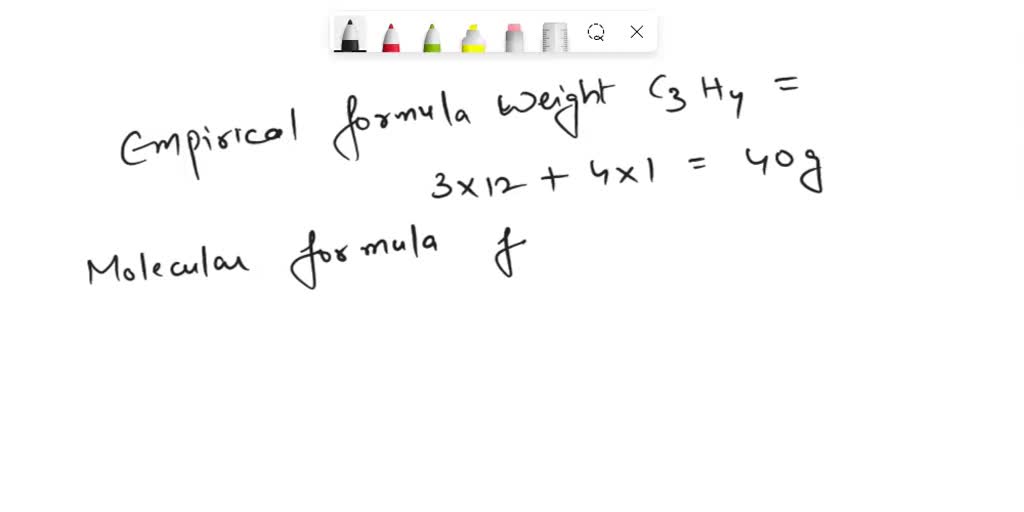 Empirical formula weight C3 H4 =
3 x 12 + 4 x 1 = 40g
Molecular formula f